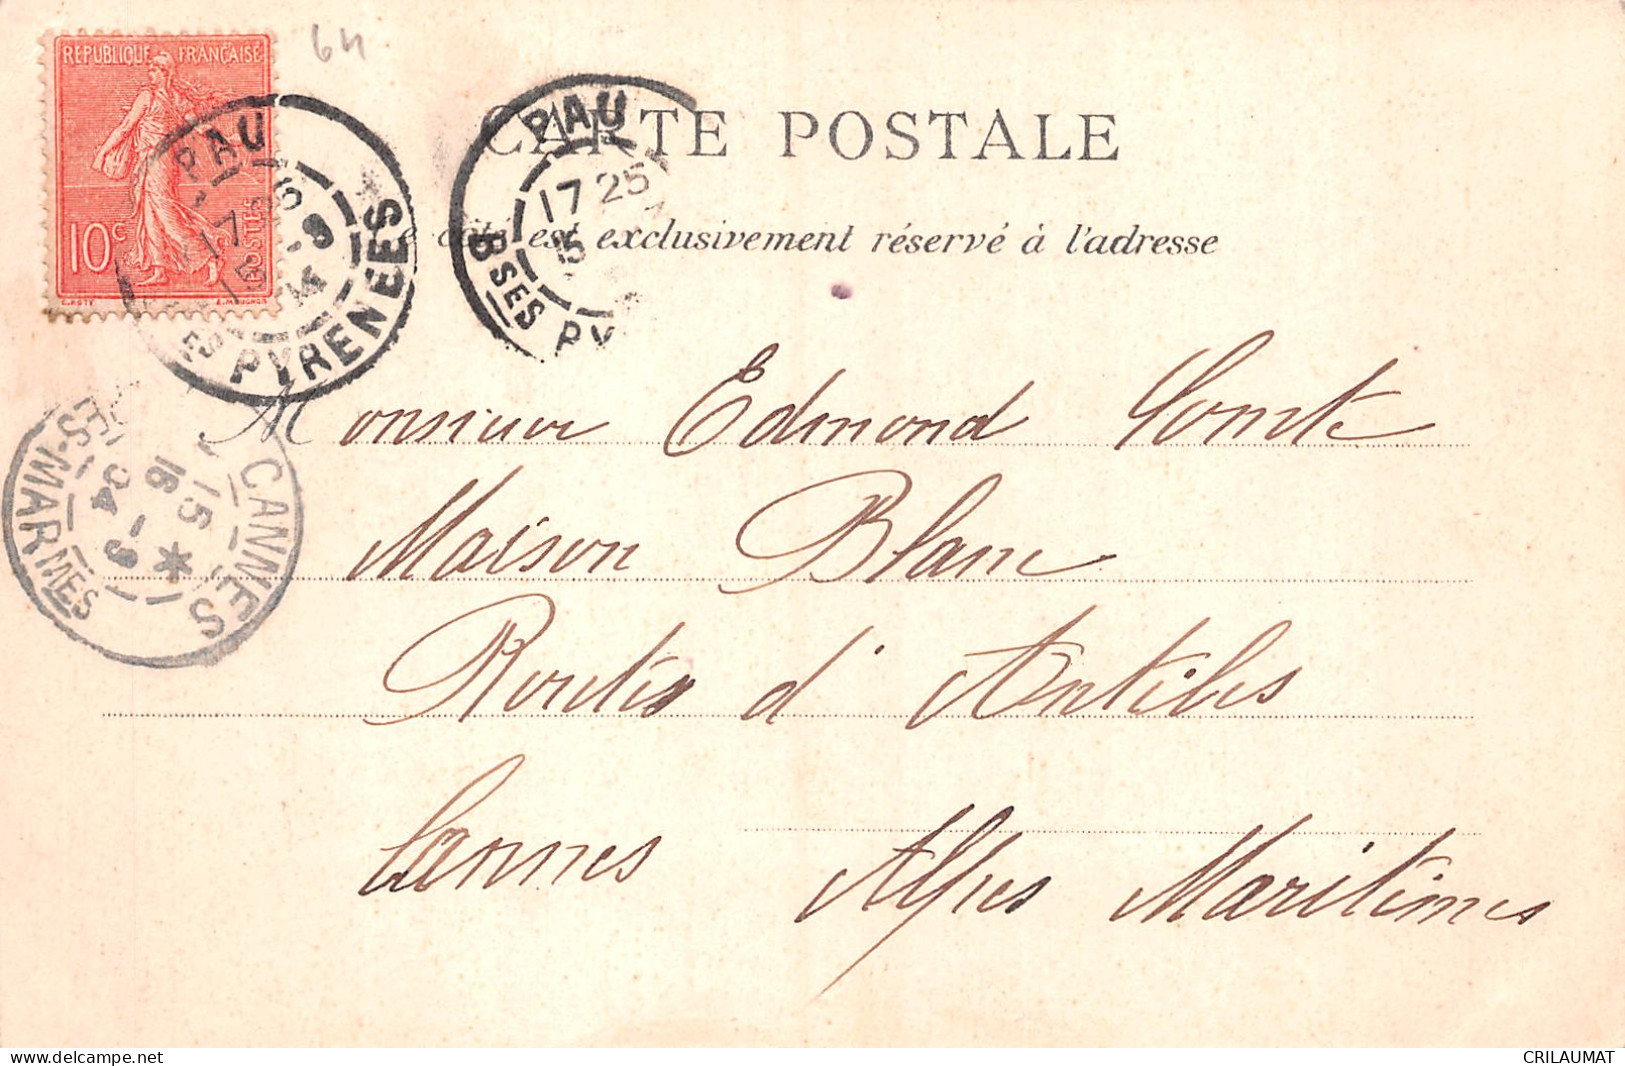 64
REPUBLIQUE FRANÇAISE
10c
POSTES
PAU
17 25
15 -9
04
BSES PYRENEES
PAU
17 25
15
BSES PY
CARTE POSTALE
e côté est exclusivement réservé à l'adresse
CANNES
15
16 -9
04
ES-MARMES
Monsieur Edmond Comte
Maison Blanc
Route d'Antibes
Cannes Alpes Maritimes
www.delcampe.net
CRILAUMAT